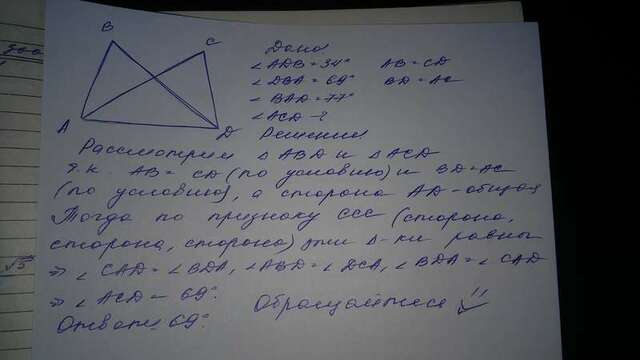 B
C
A
D
Дано:
∠ADB = 34° AB = CD
∠DBA = 69° BD = AC
∠BAD = 77°
∠ACD - ?
Решение
Рассмотрим Δ ABD и Δ ACD
т.к. AB = CD (по условию) и BD = AC
(по условию), а сторона AD - общая
Тогда по признаку ССС (сторона,
сторона, сторона) эти Δ-ки равны
⇒ ∠CAD = ∠BDA, ∠ABD = ∠DCA, ∠BDA = ∠CAD
⇒ ∠ACD = 69°.
Ответ: 69°. Обращайтесь
√5